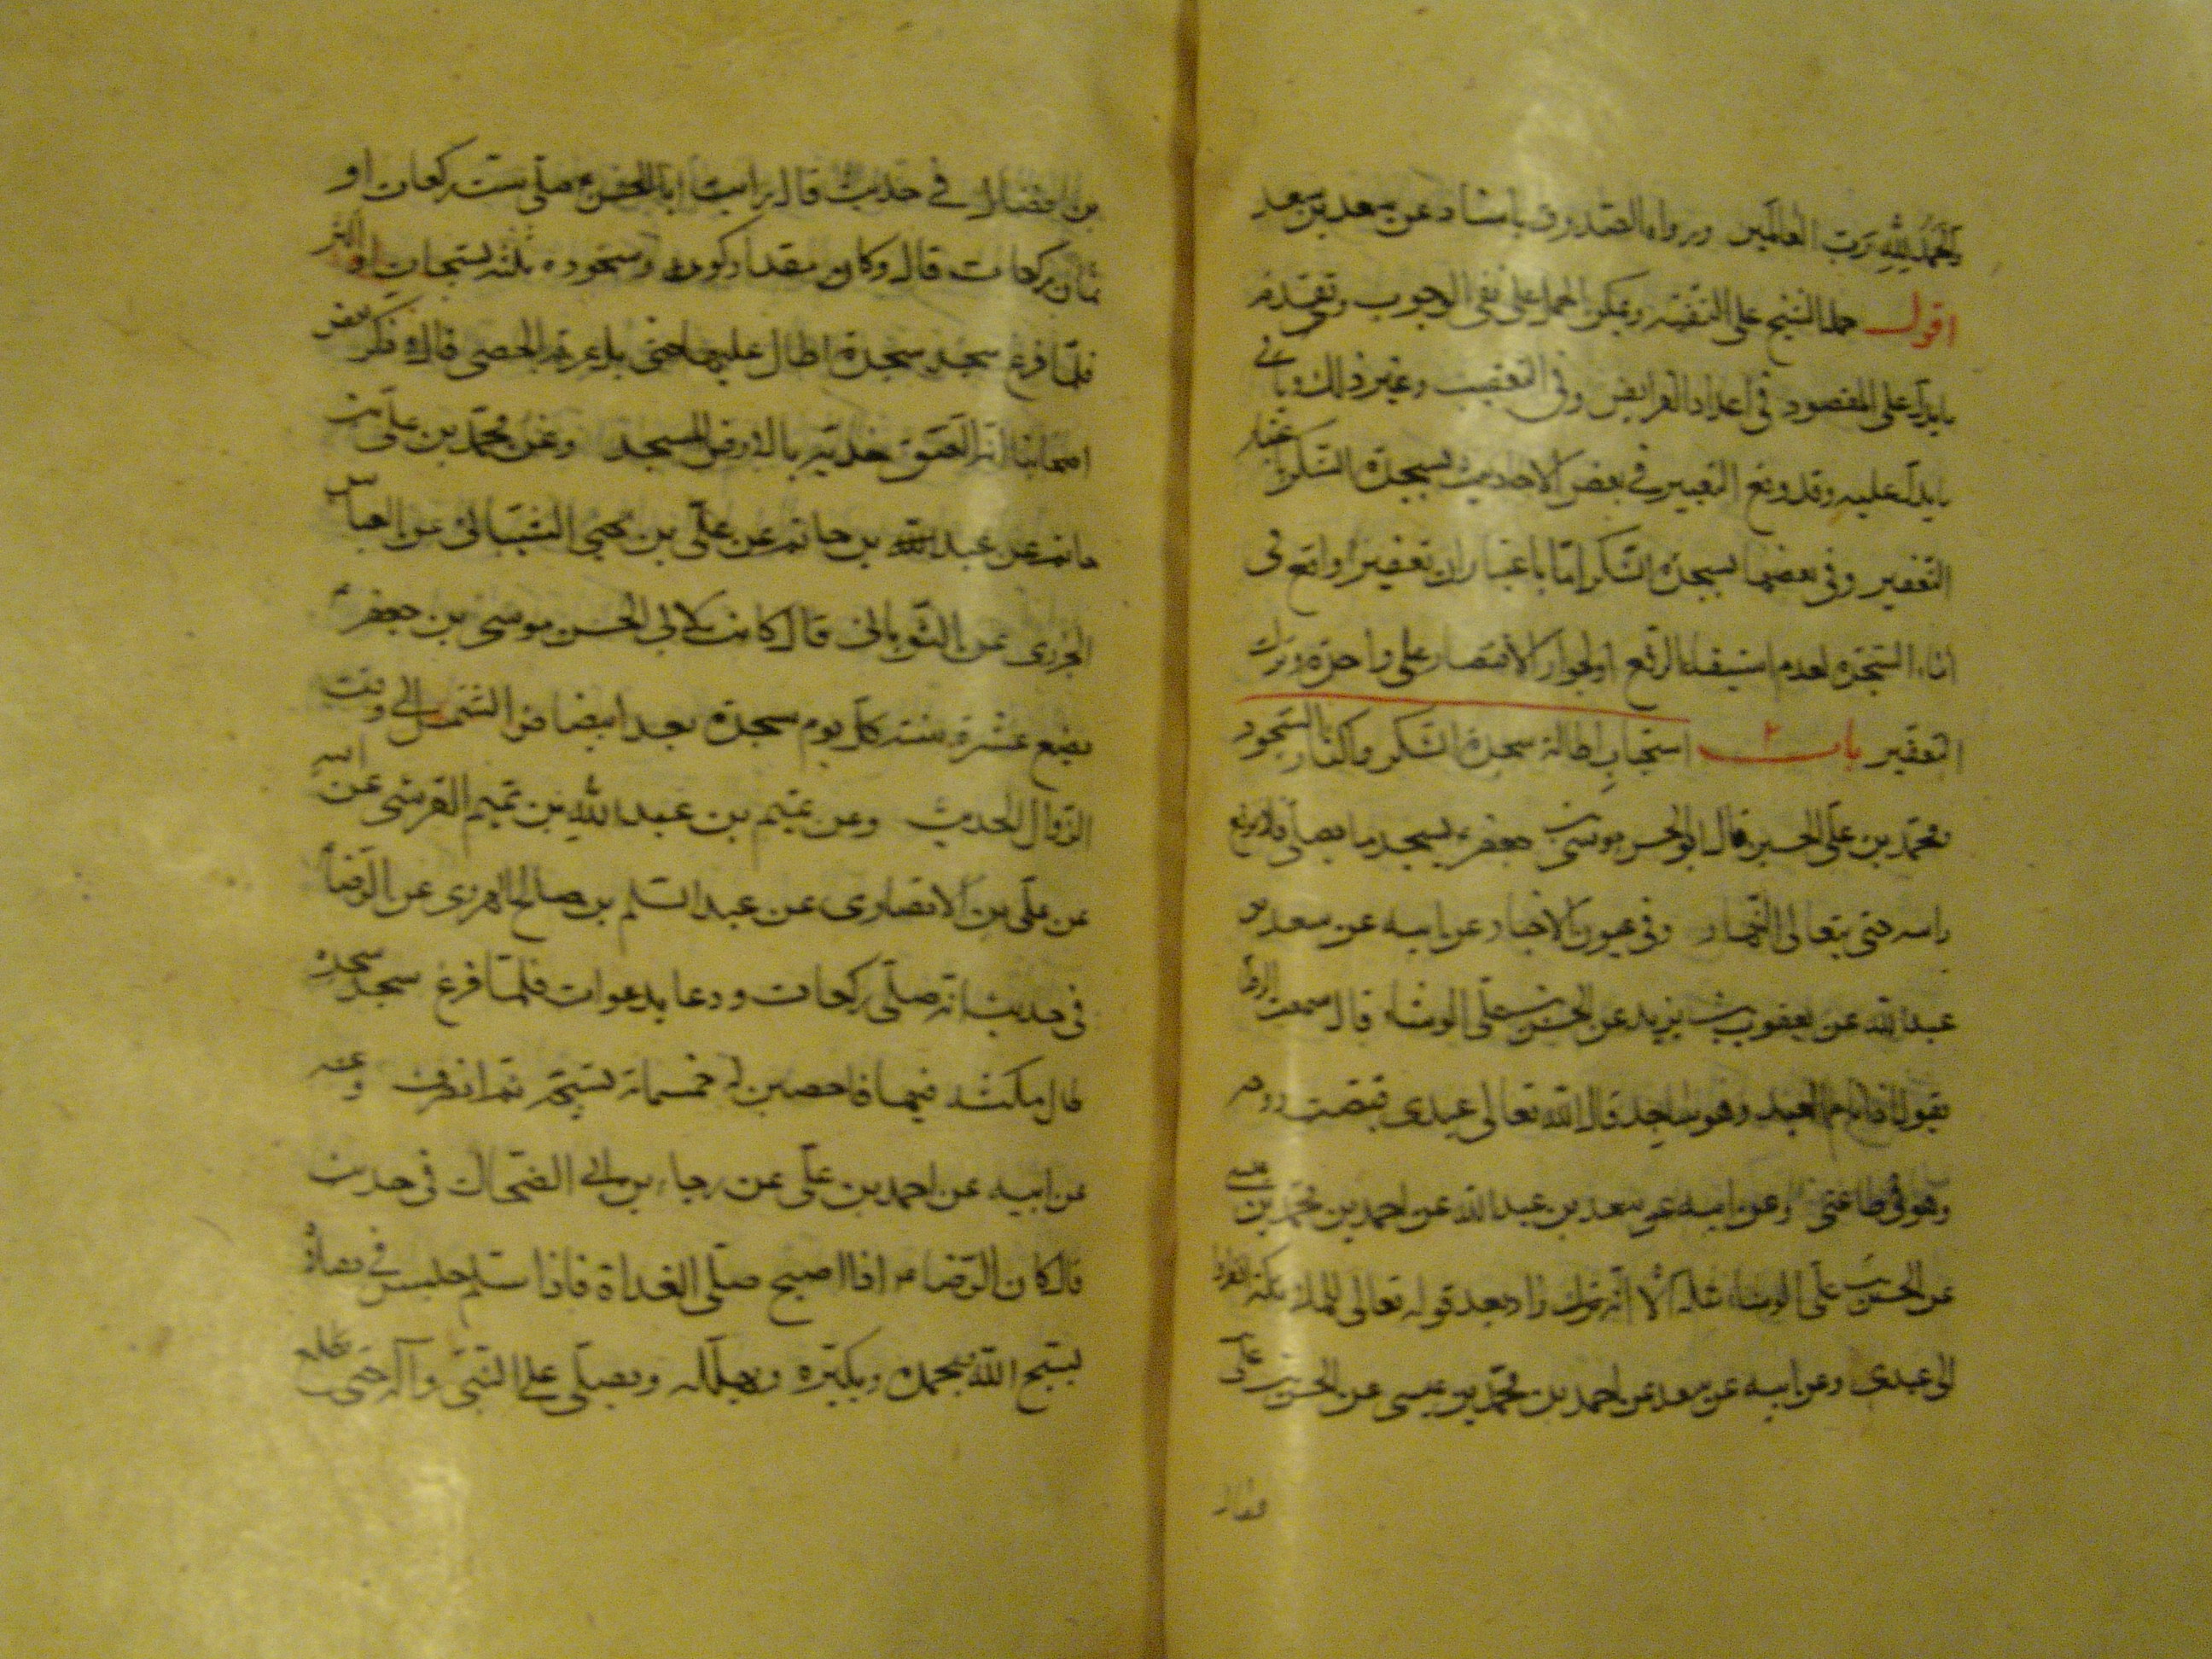 الحمد لله رب العالمين ورواه الصدوق باسناده عن سعد بن سعد
اقول حمله الشيخ على التقية ويمكن الحمل على نفى الوجوب وتقدم
ما يدل على المقصود فى اعداد الفرايض وفى التعقيب وغير ذلك وياتى
ما يدل عليه وقد وقع التعبير فى بعض الاحاديث بسجدة الشكر باعتبار
التعفير وفى بعضها بسجدة الشكر اما باعتبار ان تعفيرا واقع فى
اثناء السجدة لعدم استيفاء الرفع او لجواز الاقتصار على واحدة وترك
التعفير باب ٢ استحباب اطالة سجدة الشكر واكثار السجود
محمد بن على الحسين قال ابو الحسن موسى بن جعفر ع يسجد ما يصلى فلا يرفع
راسه حتى يتعالى النهار وفى عيون الاخبار عن ابيه عن سعد بن
عبد الله عن يعقوب بن يزيد عن الحسن بن على الوشاء قال سمعت الرضا
يقول اذا نام العبد وهو ساجد قال الله تعالى عبدى قبضت روحه
وهو فى طاعتى وعن ابيه عن سعد بن عبد الله عن احمد بن محمد بن عيسى
عن الحسن بن على الوشاء مثله الا انه زاد بعد قوله تعالى للملائكة انظروا
الى عبدى وعن ابيه عن سعد عن احمد بن محمد بن عيسى عن الحسن بن على
بن فضال فى حديث قال رايت ابا الحسن ع صلى ست ركعات او
ثمان ركعات قال وكان مقدار ركوعه وسجوده ثلث تسبيحات او اكثر
فلما فرغ سجد سجدة اطال عليها حتى بل عرقه الحصى قال وذكر بعض
اصحابنا انه الصق خديه بارض المسجد وعن محمد بن على بن
حاتم عن عبد الله بن حاتم عن على بن يحيى الشيبانى عن ابى العباس
الجزرى عن الثوبانى قال كانت لابى الحسن موسى بن جعفر ع
بضع عشرة سنة كل يوم سجدة بعد ابيضاض الشمس الى وقت
الزوال الحديث وعن تميم بن عبد الله بن تميم القرشى عن ابيه
عن على بن الانصارى عن عبد السلم بن صالح الهروى عن الرضا ع
فى حديث انه صلى ركعات ودعا بدعوات فلما فرغ سجد سجدة
طال مكثه فيها فاحصيت له خمسمائة تسبيحة ثم انصرف وعنه
عن ابيه عن احمد بن على عن رجاء بن ابى الضحاك فى حديث
قال كان الرضا ع اذا اصبح صلى الغداة فاذا سلم جلس فى مصلاه
يسبح الله ويحمده ويكبره ويهلله ويصلى على النبى وآله حتى تطلع